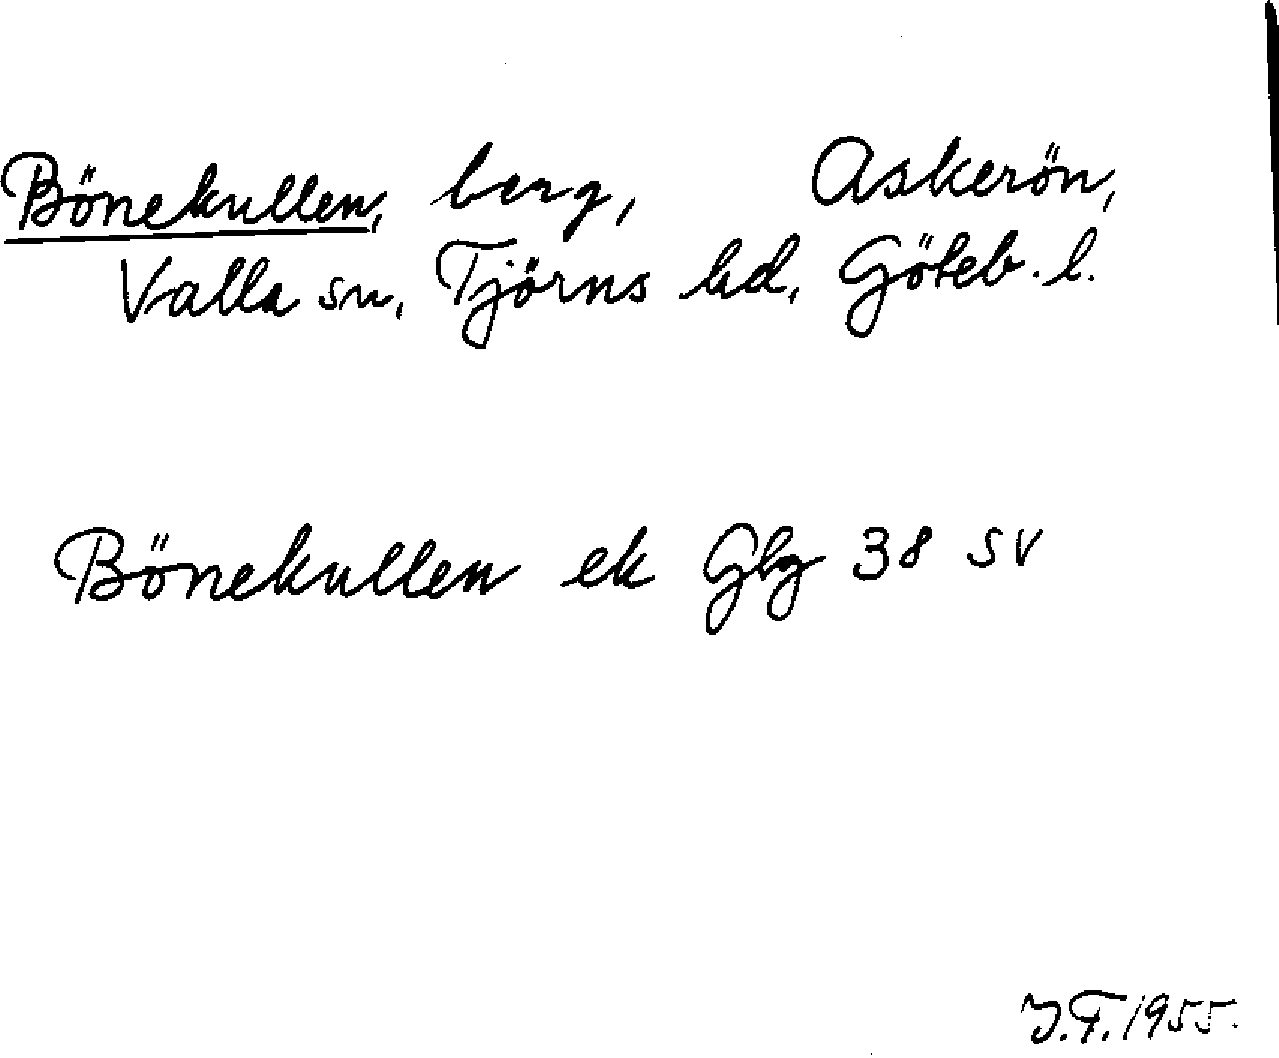 Bönekullen, berg, Askerön,
Valla sn, Tjörns hd, Göteb. l.
Bönekullen ek Gbg 38 SV
J.F. 1955.